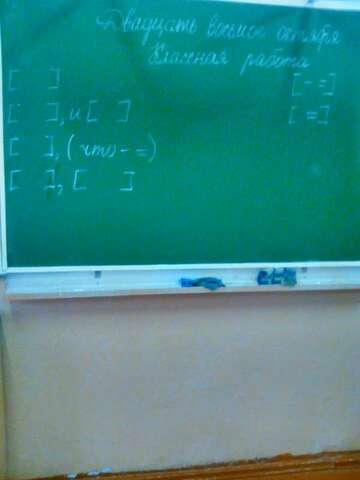 Двадцать восьмое октября
Классная работа
[ ] [- =]
[ ], и [ ] [=]
[ ], (что - =)
[ ], [ ]